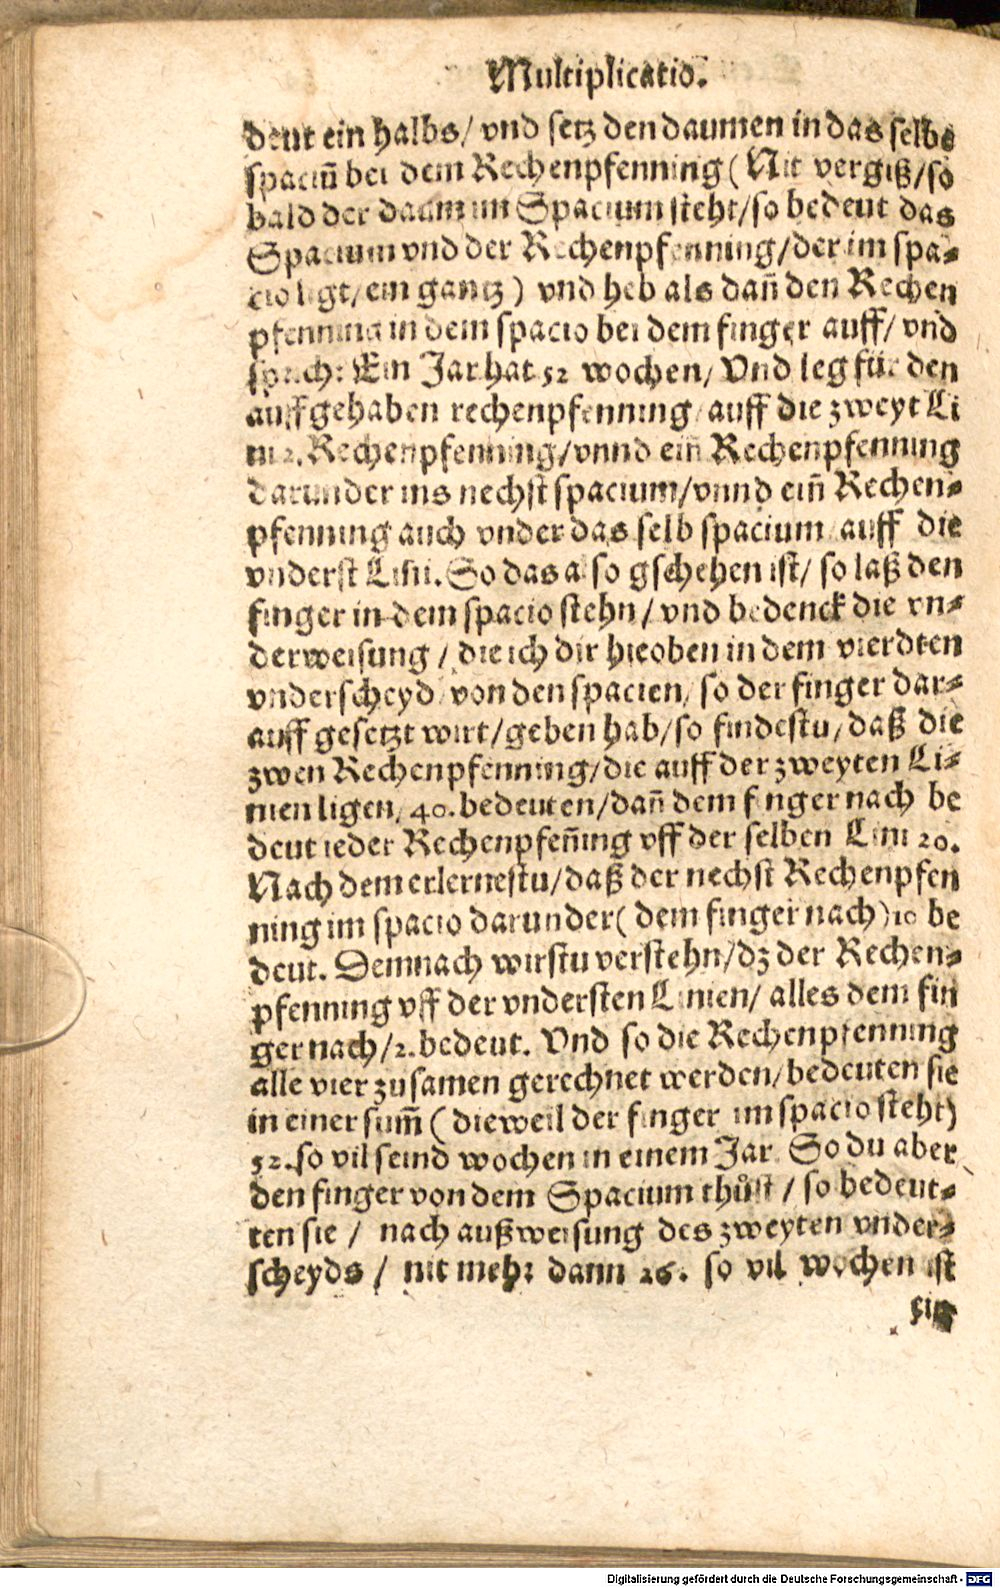 Multiplicatio.
deut ein halbs/ vnd setz den daumen in das selbs
spaciū bei dem Rechenpfenning (Nit vergiß/so
bald der daum im Spacium steht/so bedeut das
Spacium vnd der Rechenpfenning/der im spa⸗
cio ligt/ein gantz) vnd heb als dañ den Rechen
pfenning in dem spacio bei dem finger auff/ vnd
sprich: Ein Jar hat 52 wochen/ Vnd leg für den
auffgehaben rechenpfenning auff die zweyt Li
ni 2. Rechenpfenning/vnnd eiñ Rechenpfenning
darunder ins nechst spacium/vnnd eiñ Rechen⸗
pfenning auch vnder das selb spacium auff die
vnderst Lini. So das also gschehen ist/ so laß den
finger in dem spacio stehn/ vnd bedenck die vn⸗
derweisung / die ich dir hieoben in dem vierdten
vnderscheyd von den spacien/ so der finger dar⸗
auff gesetzt wirt/geben hab/so findestu/daß die
zwen Rechenpfenning/die auff der zweyten Li⸗
nien ligen/ 40. bedeuten/dañ dem finger nach be
deut ieder Rechenpfeñing vff der selben Lini 20.
Nach dem erlernestu/daß der nechst Rechenpfen
ning im spacio darunder( dem finger nach) 10 be
deut. Demnach wirstu verstehn/dz der Rechen⸗
pfenning vff der vndersten Linien/ alles dem fin
ger nach/2. bedeut. Vnd so die Rechenpfenning
alle vier zusamen gerechnet werden/bedeuten sie
in einer sum̃ ( dieweil der finger im spacio steht)
52. so vil seind wochen in einem Jar. So du aber
den finger von dem Spacium thůst / so bedeut⸗
ten sie / nach außweisung des zweyten vnder⸗
scheyds / nit mehr dann 26. so vil wochen ist
ein
Digitalisierung gefördert durch die Deutsche Forschungsgemeinschaft - DFG